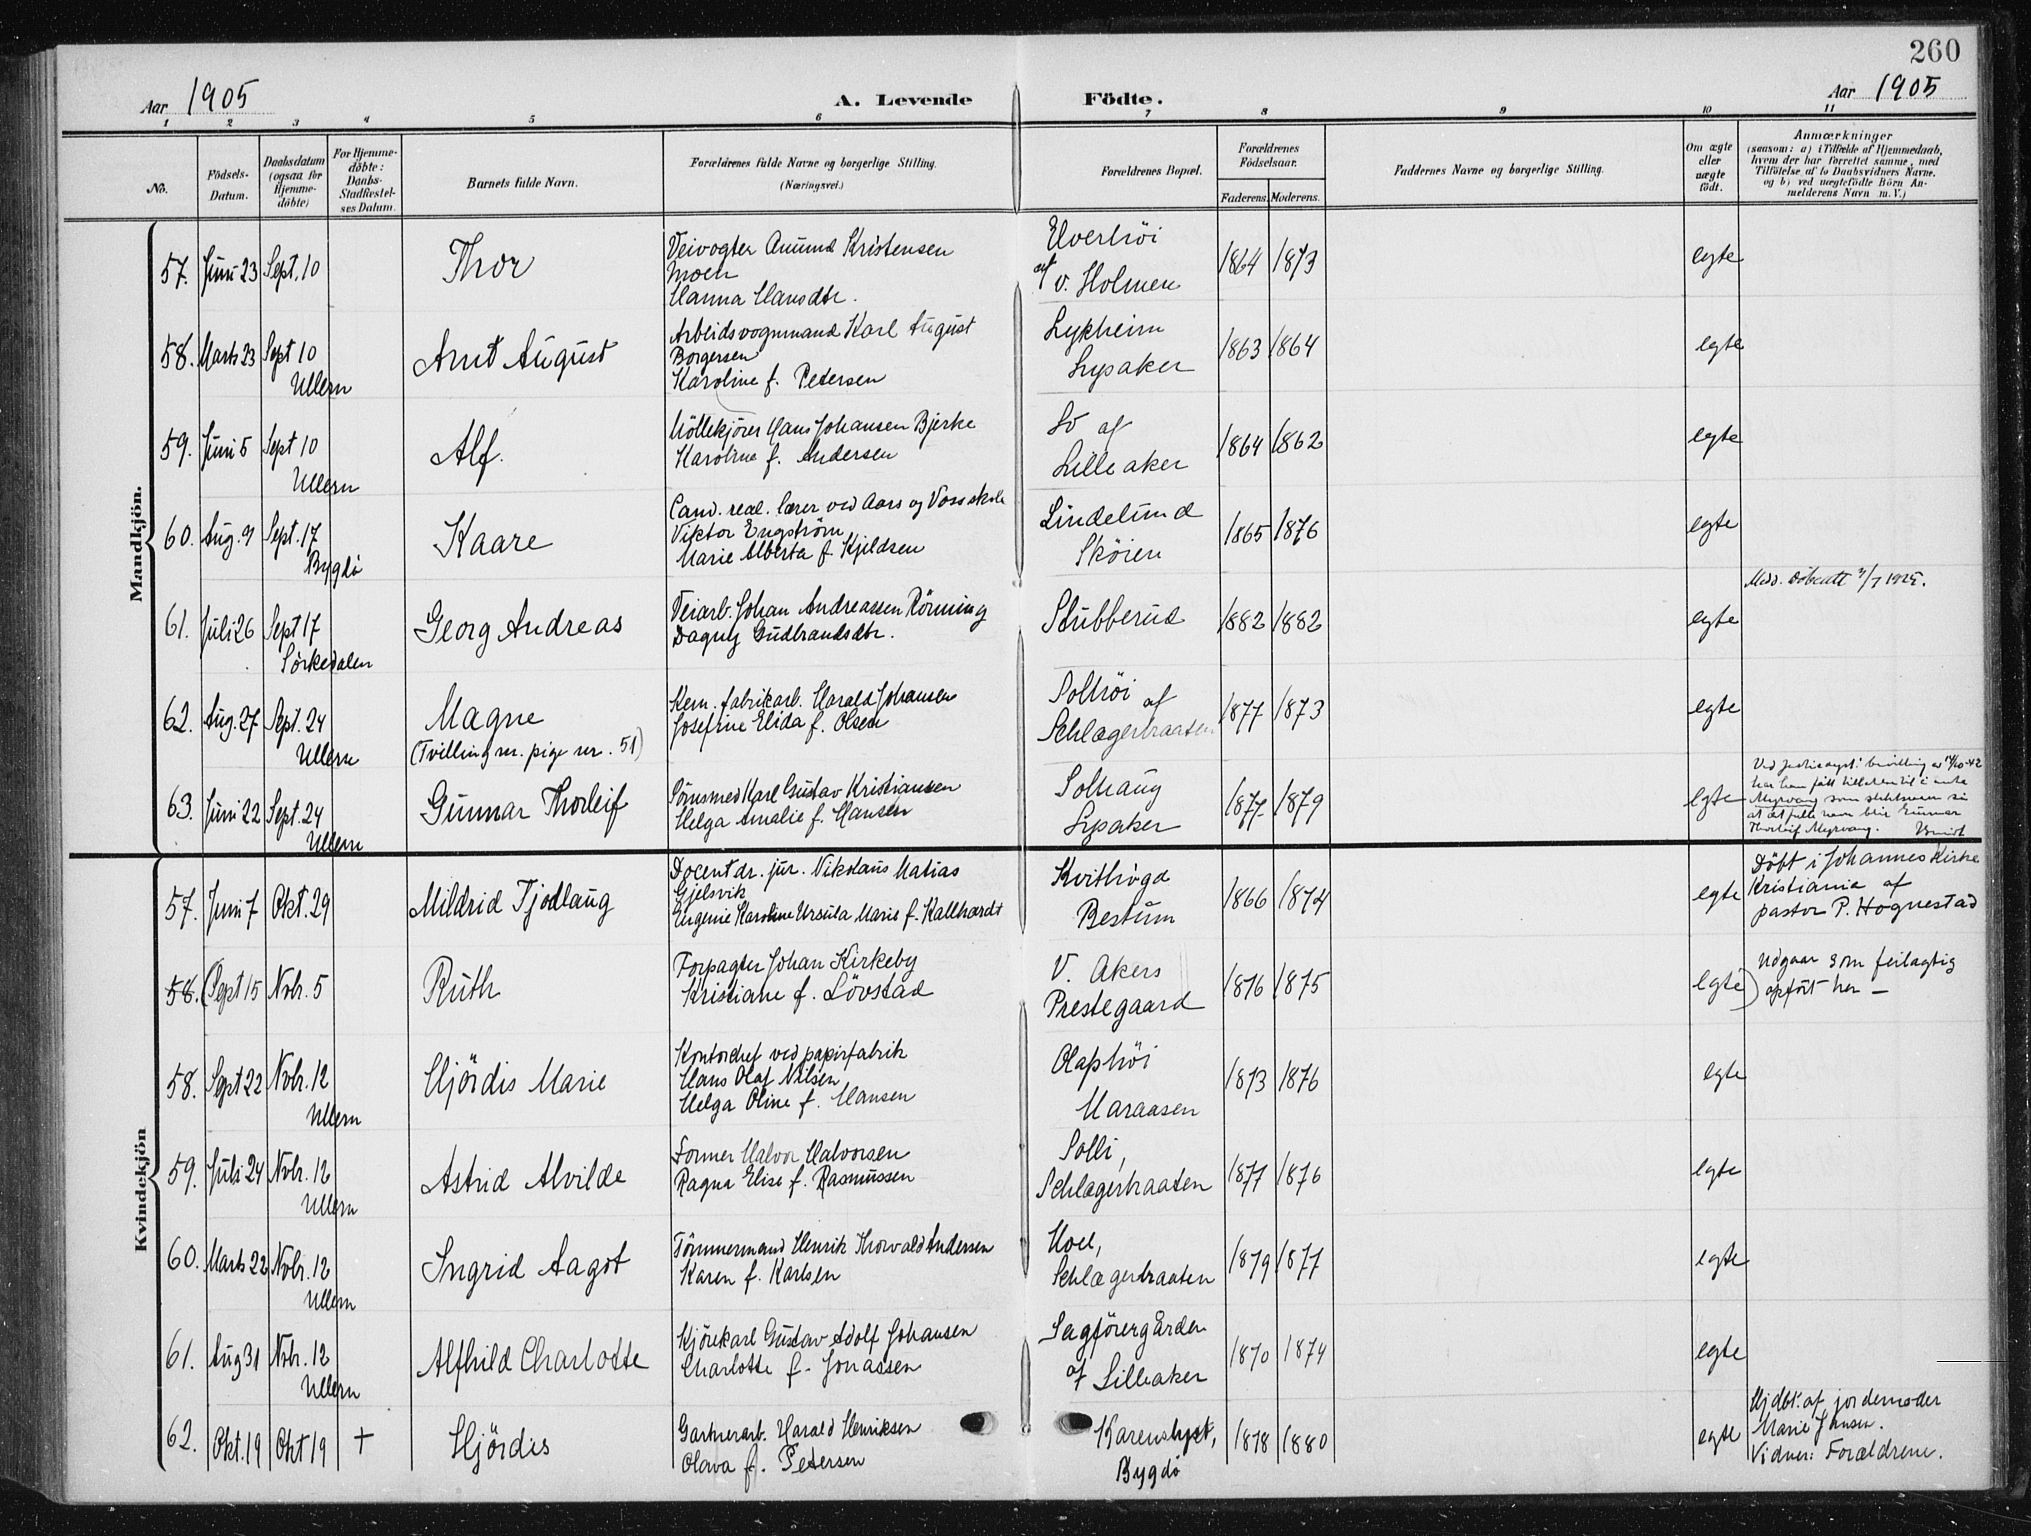 260
Aar 1905 A. Levende Födte. Aar 1905
1 2 3 4 5 6 7 8 9 10 11
No.
Födsels-Datum.
Daabsdatum (ogsaa for Hjemme-döbte)
For Hjemme-döbte: Daabs-Stadfæstel-ses Datum.
Barnets fulde Navn.
Forældrenes fulde Navne og borgerlige Stilling. (Næringsvei.)
Forældrenes Bopæl.
Forældrenes Födselsaar.
Faderens. Moderens.
Faddernes Navne og borgerlige Stilling.
Om ægte eller uægte födt.
Anmærkninger
(saasom: a) i Tilfælde af Hjemmedaab,
hvem der har forrettet samme, med
Tilföielse af to Daabsvidners Navne.
og b) ved uægtefödte Börn An-
melderens Navn m. V.)
Mandkjön.
57. Juni 23 Sept. 10 Thor
Veivogter Amund Kristensen
Moen
Hanna Hansdtr.
Elverhöi
af v. Holmen
1864 1873 egte
58. Marts 23 Sept 10
Ullern
Arnt August
Arbeidsvognmand Karl August
Borgersen
Karoline f. Petersen
Lykheim
Lysaker
1863 1864 egte
59. Juni 5 Sept 10
Ullern
Alf.
Möllekjörer Hans Johansen Bjerke
Karoline f. Andersen
Lo af
Lilleaker
1864 1862 egte
60. Aug. 9 Sept. 17
Bygdö
Kaare
Cand. real. lærer ved Aars og Voss skole
Viktor Engström
Marie Alberta f. Kjeldsen
Lindelund
Sköien
1865 1876 egte
61. Juli 26 Sept 17
Sörkedalen
Georg Andreas
Veiarb. Johan Andreassen Rönning
Dagny Gudbrandsdtr.
Stubberud
1882 1882 egte
Medd. Dåbsatt 1925.
62. Aug. 27 Sept. 24
Ullern
Magne
(Tvilling m. pige nr. 51)
Kem. fabrikarb. Harald Johansen
Josefine Elida f. Olsen
Solhöi af
Schlagerbraaten
1877 1873 egte
63. Juni 22 Sept. 24
Ullern
Gunnar Thorleif
Karl Gustav Kristiansen
Helga Amalie f. Hansen
Solhaug
Lysaker
1877 1879 egte
Ved bevilling av
har han fått tillatelse til i
Myrvang som slektsnavn så
at det fulle navn blir Gunnar
Thorleif Myrvang.
Kvindekjön
57. Juni 7 Okt. 29 Mildrid Tjodlaug
Docent dr. jur. Nikolaus Matias
Gjelsvik
Eugenie Karoline Ursula Marie f. Kallhardt
Kvithögda
Bestum
1866 1874 egte
Döbt i Johannes Kirke
Kristiania af
pastor P. Hognestad
58. (Sept 15 Nvbr. 5 Ruth
Forpagter Johan Kirkeby
Kristiane f. Lövstad
V. Akers
Prestegaard
1876 1875 egte)
Udgaar som feilagtig
opfört her —
58. Sept 22 Nvbr. 12
Ullern
Hjördis Marie
Kontorchef ved papirfabrik
Hans Olaf Nilsen
Helga Oline f. Hansen
Olaphöi
Maraasen
1873 1876 egte
59. Juli 24 Nvbr. 12
Ullern
Astrid Alvilde
Former Halvor Halvorsen
Ragna Elise f. Rasmussen
Solli,
Schlagerbraaten
1877 1876 egte
60. Marts 22 Nvbr. 12
Ullern
Ingrid Aagot
Tömmermand Henrik Thorvald Andersen
Karen f. Karlsen
Moel,
Schlagerbraaten
1879 1877 egte
61. Aug 31 Nvbr. 12
Ullern
Alfhild Charlotte
Kjörekarl Gustav Adolf Johansen
Charlotte f. Jonassen
Sagförergården
af Lilleaker
1870 1874 egte
62. Okt. 19 Okt 19 + Hjördis
Gartnerarb. Harald Henriksen
Olava f. Petersen
Karenslyst,
Bygdö
1878 1880 egte
Hjdbt. af jordemoder
Marie Jensen.
Vidner: Forældrene.